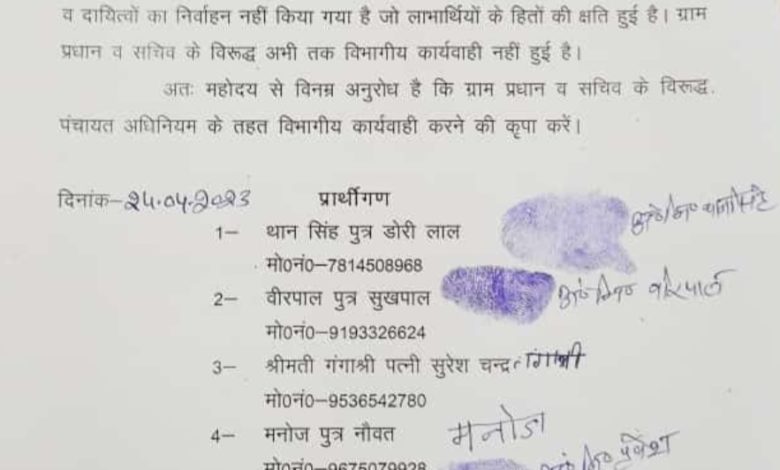 व दायित्वों का निर्वाहन नहीं किया गया है जो लाभार्थियों के हितों की क्षति हुई है। ग्राम
प्रधान व सचिव के विरूद्ध अभी तक विभागीय कार्यवाही नहीं हुई है।
अतः महोदय से विनम्र अनुरोध है कि ग्राम प्रधान व सचिव के विरूद्ध
पंचायत अधिनियम के तहत विभागीय कार्यवाही करने की कृपा करें।
दिनांक–24.04.2023 प्रार्थीगण
1– थान सिंह पुत्र डोरी लाल
मो0नं0–7814508968
2– वीरपाल पुत्र सुखपाल वीरपाल
मो0नं0–9193326624
3– श्रीमती गंगाश्री पत्नी सुरेश चन्द्र गंगाश्री
मो0नं0–9536542780
4– मनोज पुत्र नौवत मनोज
मो0नं0–9675079928